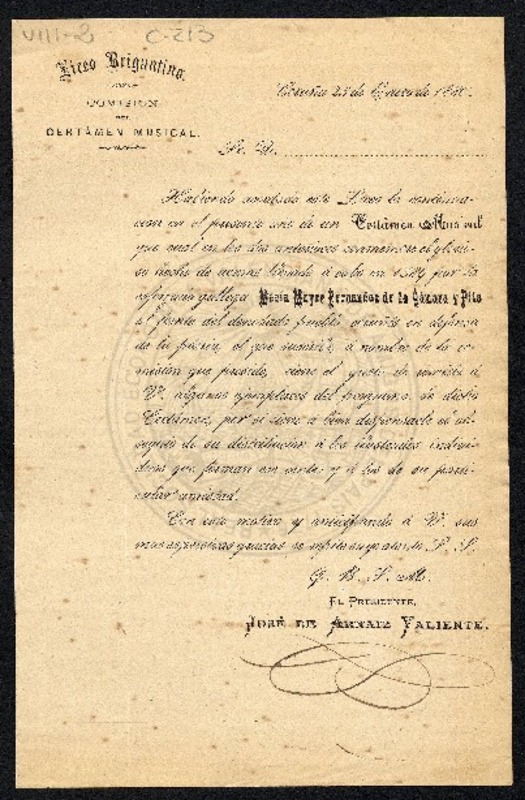 VIII-2 C-213
Liceo Brigantino.
COMISION
DEL
CERTÁMEN MUSICAL.
Coruña 25 de Enero de
Sr. D.
Habiendo acordado este Liceo la
en el presente año de un Certámen Musical
que cual en los dos anteriores conmemore el
hecho de armas llevado á cabo en 1589 por la
gallega María Mayor Fernandez de la Cámara y Pita
al frente del denodado pueblo en defensa
de la pátria, el que suscribe, á nombre de la co-
mision que preside, tiene el gusto de remitir á
V. algunos ejemplares del programa de dicho
Certámen, por si tiene á bien dispensarle el ob-
sequio de su distribucion á los indivi-
duos que forman y á los de su parti-
cular amistad.
Con este motivo y anticipando á V. sus
mas expresivas gracias, se repite suyo atento S. S.
Q. B. S. M.
EL PRESIDENTE,
JOSÉ DE ARNAIZ VALIENTE.